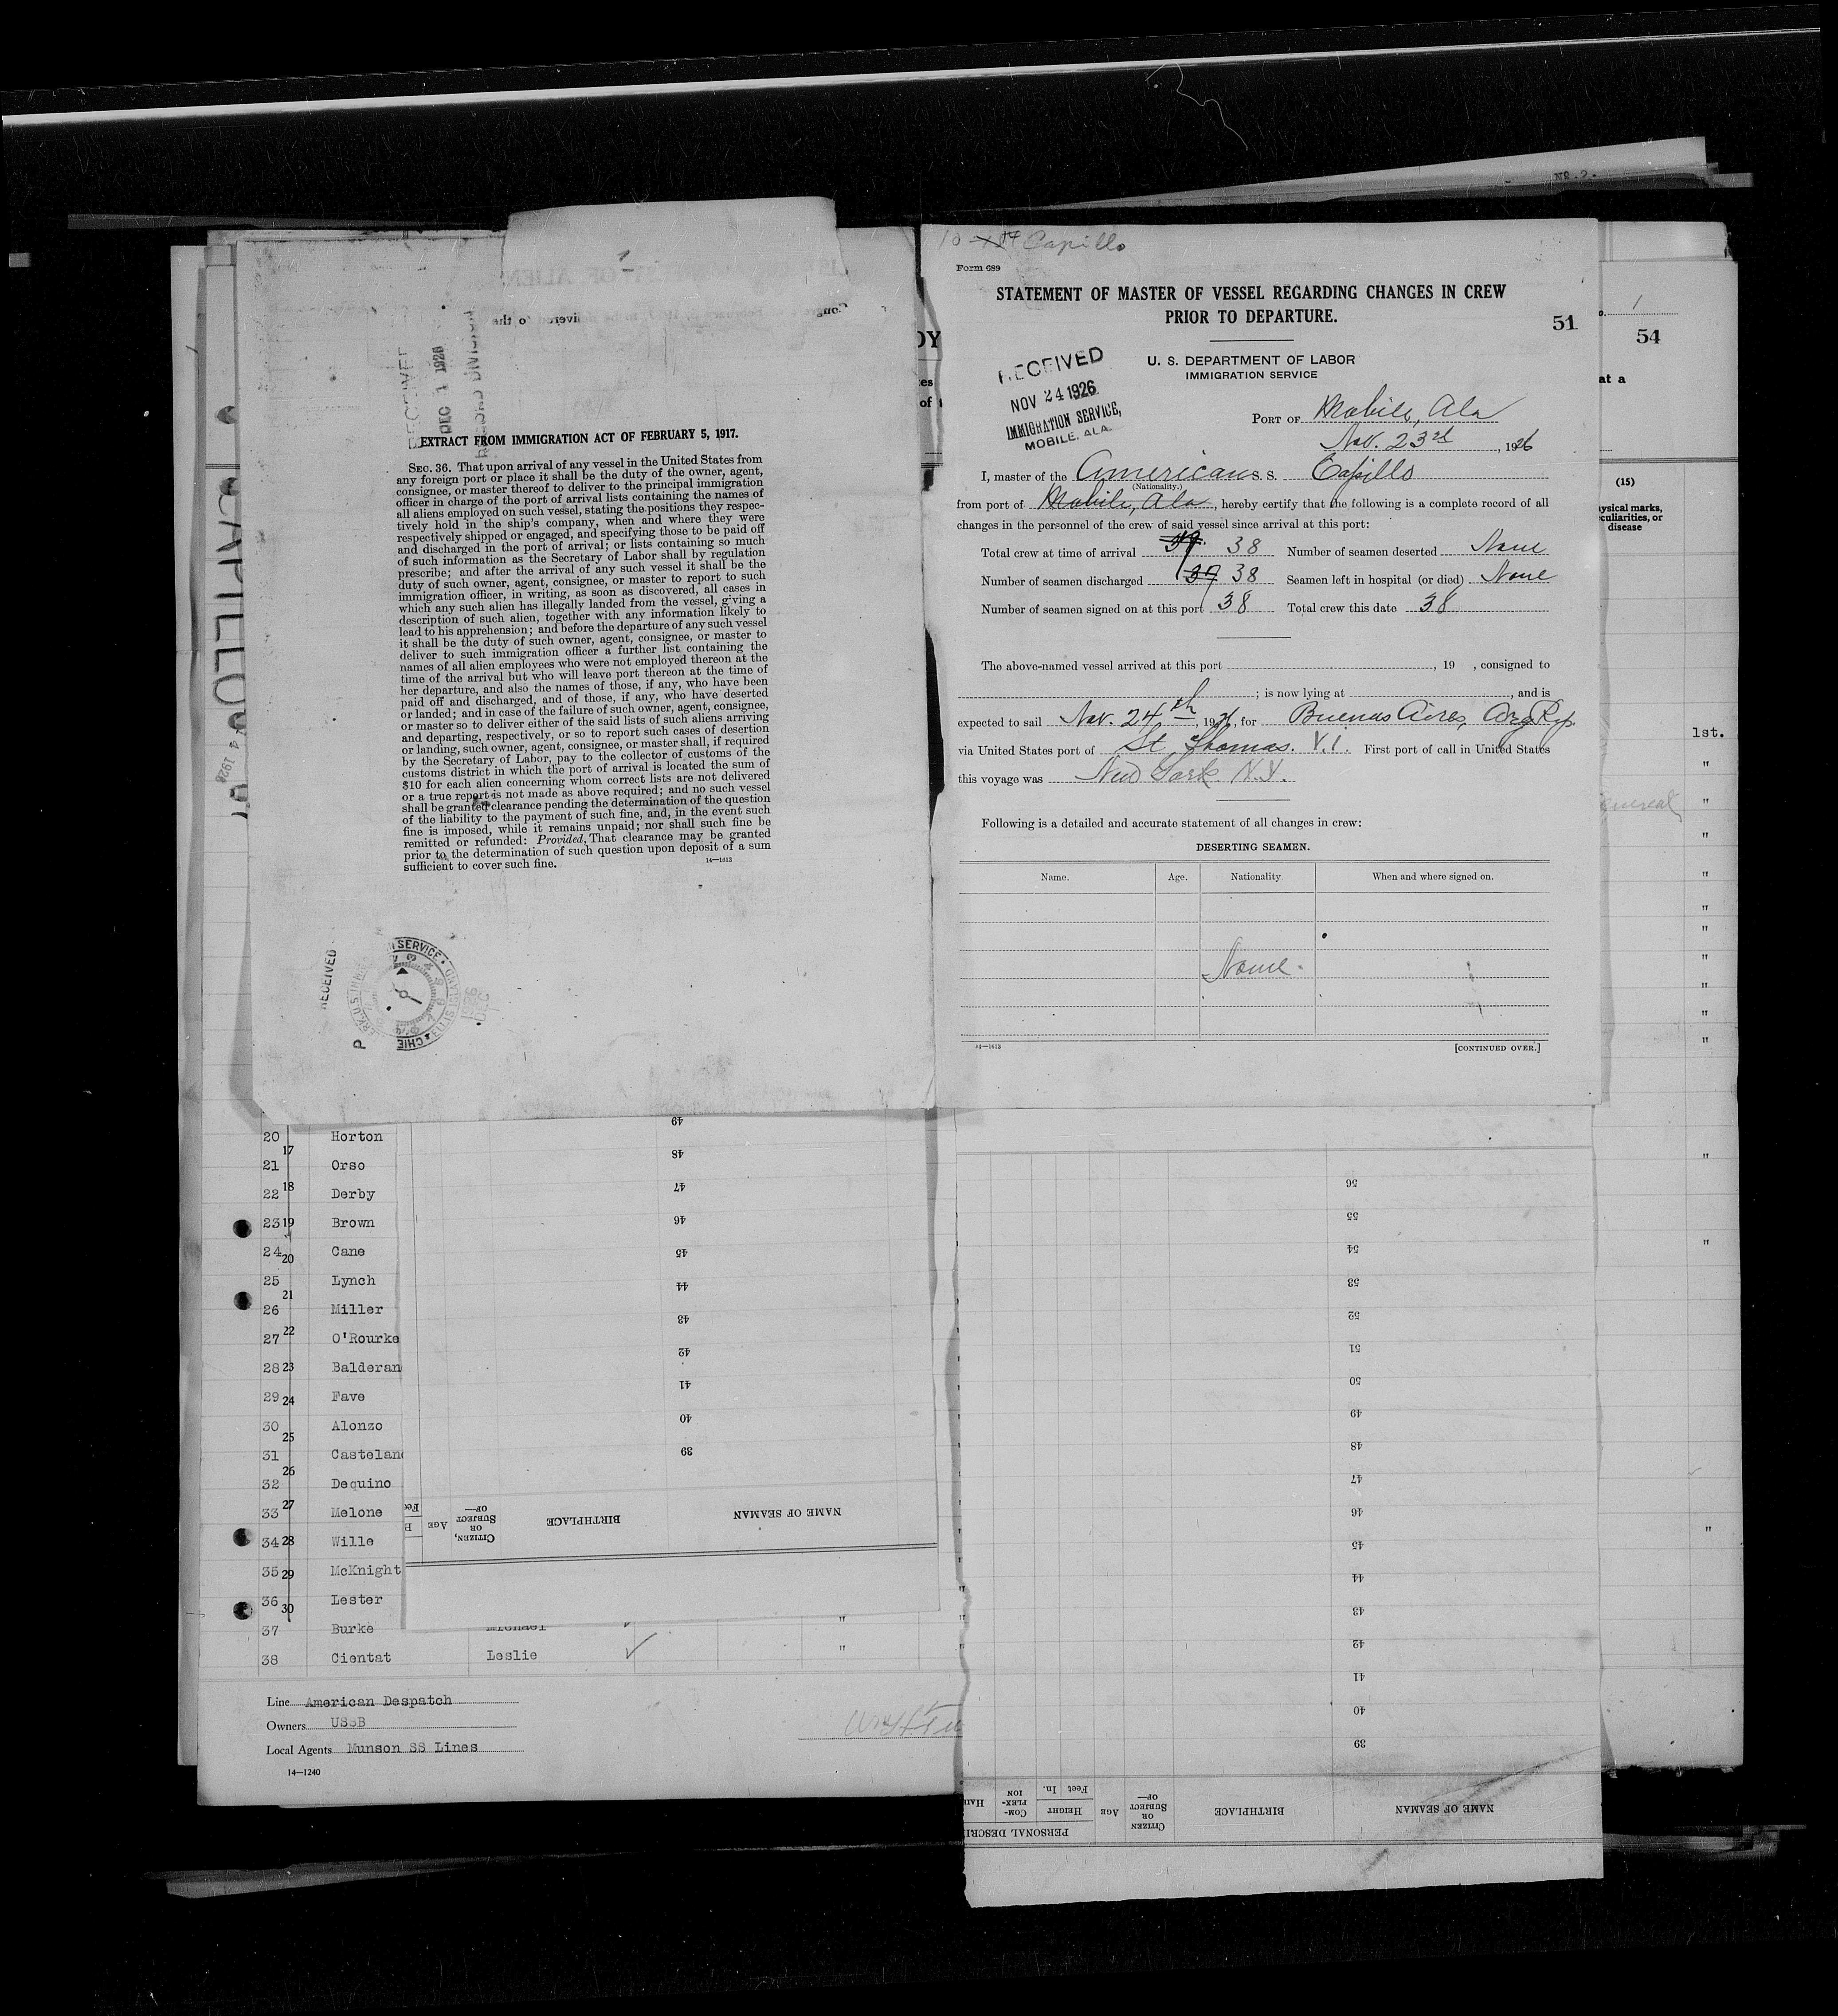 No. 2.
Capillo
Form 689
STATEMENT OF MASTER OF VESSEL REGARDING CHANGES IN CREW
PRIOR TO DEPARTURE.
51
U. S. DEPARTMENT OF LABOR
IMMIGRATION SERVICE
RECEIVED
NOV 24 1926
IMMIGRATION SERVICE,
MOBILE, ALA.
PORT OF Mobile, Ala
Nov. 23rd, 1926
I, master of the American S. S. Capillo
(Nationality.)
from port of Mobile, Ala, hereby certify that the following is a complete record of all
changes in the personnel of the crew of said vessel since arrival at this port:
Total crew at time of arrival 38 Number of seamen deserted None
Number of seamen discharged 39 38 Seamen left in hospital (or died) None
Number of seamen signed on at this port 38 Total crew this date 38
The above-named vessel arrived at this port , 19 , consigned to
; is now lying at , and is
expected to sail Nov. 24th, 1926, for Buenos Aires, Arg Rep.
via United States port of St. Thomas. V.I. First port of call in United States
this voyage was New York N.Y.
Following is a detailed and accurate statement of all changes in crew:
DESERTING SEAMEN.
Name. Age. Nationality When and where signed on.
None.
14—1613
[CONTINUED OVER.]
RECEIVED
DEC 1 1926
RECORD DIVISION
EXTRACT FROM IMMIGRATION ACT OF FEBRUARY 5, 1917.
SEC. 36. That upon arrival of any vessel in the United States from
any foreign port or place it shall be the duty of the owner, agent,
consignee, or master thereof to deliver to the principal immigration
officer in charge of the port of arrival lists containing the names of
all aliens employed on such vessel, stating the positions they respec-
tively hold in the ship's company, when and where they were
respectively shipped or engaged, and specifying those to be paid off
and discharged in the port of arrival; or lists containing so much
of such information as the Secretary of Labor shall by regulation
prescribe; and after the arrival of any such vessel it shall be the
duty of such owner, agent, consignee, or master to report to such
immigration officer, in writing, as soon as discovered, all cases in
which any such alien has illegally landed from the vessel, giving a
description of such alien, together with any information likely to
lead to his apprehension; and before the departure of any such vessel
it shall be the duty of such owner, agent, consignee, or master to
deliver to such immigration officer a further list containing the
names of all alien employees who were not employed thereon at the
time of the arrival but who will leave port thereon at the time of
her departure, and also the names of those, if any, who have been
paid off and discharged, and of those, if any, who have deserted
or landed; and in case of the failure of such owner, agent, consignee,
or master so to deliver either of the said lists of such aliens arriving
and departing, respectively, or so to report such cases of desertion
or landing, such owner, agent, consignee, or master shall, if required
by the Secretary of Labor, pay to the collector of customs of the
customs district in which the port of arrival is located the sum of
$10 for each alien concerning whom correct lists are not delivered
or a true report is not made as above required; and no such vessel
shall be granted clearance pending the determination of the question
of the liability to the payment of such fine, and, in the event such
fine is imposed, while it remains unpaid; nor shall such fine be
remitted or refunded: Provided, That clearance may be granted
prior to the determination of such question upon deposit of a sum
sufficient to cover such fine.
14—1613
RECEIVED
CAPILLO
1
54
at a
(15)
physical marks,
peculiarities, or
disease
1st.
20 Horton
17
21 Orso
22 18 Derby
23 19 Brown
24 20 Cane
25 Lynch
21
26 Miller
27 22 O'Rourke
28 23 Balderan
29 24 Fave
30 Alonzo
25
31 Casteland
26
32 Dequino
33 27 Melone
34 28 Wille
35 29 McKnight
36 30 Lester
37 Burke Michael "
38 Cientat Leslie "
Line American Despatch
Owners USSB
Local Agents Munson SS Lines
14—1240
49
48
47
46
45
44
43
42
41
40
39
NAME OF SEAMAN BIRTHPLACE CITIZEN, OR SUBJECT OF— AGE
56
55
54
53
52
51
50
49
48
47
46
45
44
43
42
41
40
39
NAME OF SEAMAN BIRTHPLACE CITIZEN OR SUBJECT OF— AGE HEIGHT Feet In. COM-PLEX-ION
PERSONAL DESCRI